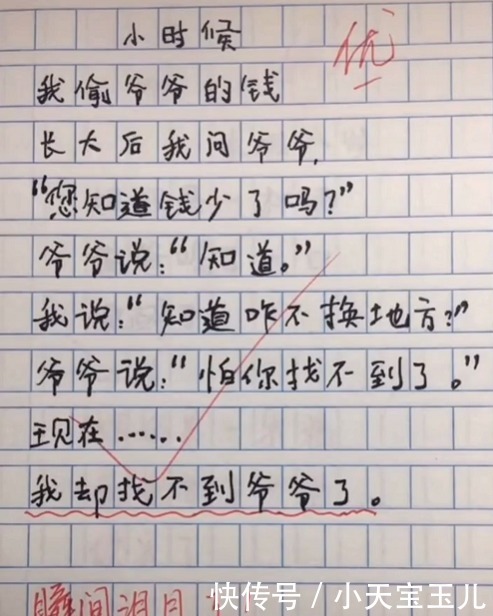 小时候
优
我偷爷爷的钱
长大后我问爷爷,
“您知道钱少了吗?”
爷爷说:“知道。”
我说:“知道咋不换地方?”
爷爷说:“怕你找不到了。”
现在……
我却找不到爷爷了。
瞬间泪目
快传号/小天宝玉儿